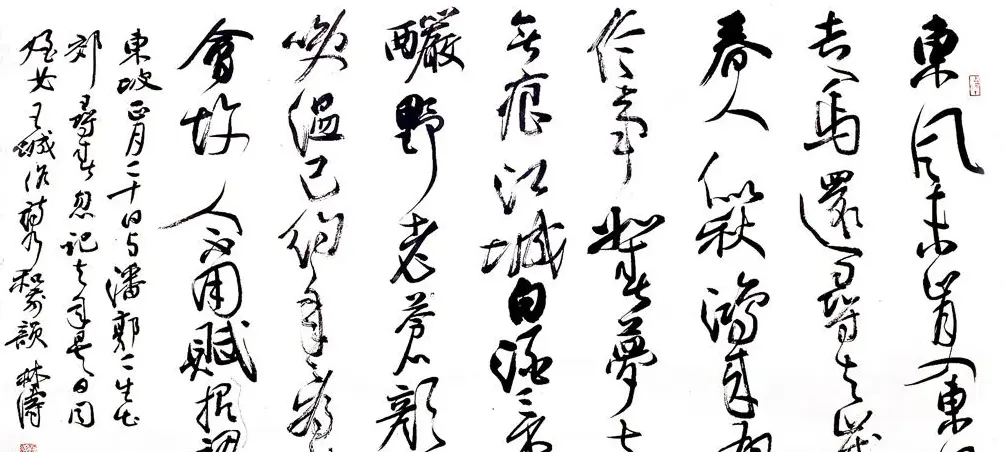 東風未肯入東
走馬還尋去歲
春人似秋鴻來有
信事如春夢了
無痕江城白酒三杯
釅野老蒼顏
咲溫已約年年為
會故人不用賦招
東坡正月二十日与潘郭二生出
郊尋春忽記去年是日同
至女王城作詩乃和前韻 林濤